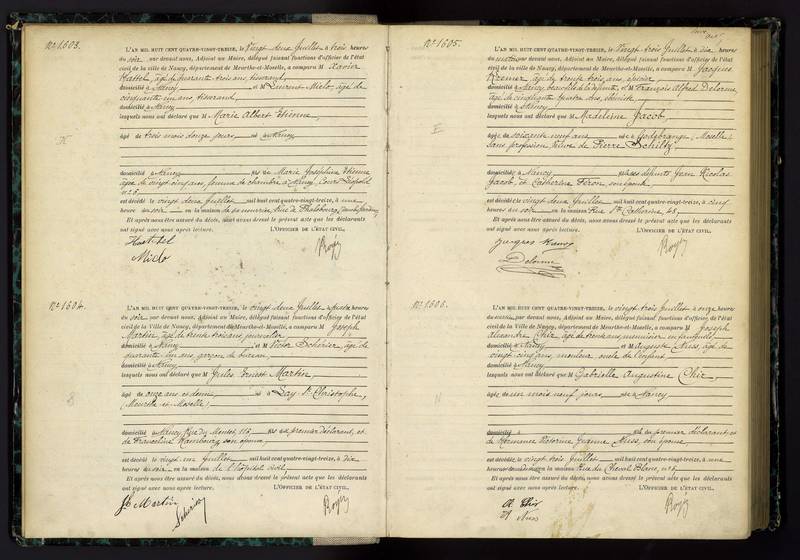 N° 1603.
L'AN MIL HUIT CENT QUATRE-VINGT-TREIZE, le Vingt deux Juillet à trois heures
du soir, par devant nous, Adjoint au Maire, délégué faisant fonctions d'officier de l'état
civil de la ville de Nancy, département de Meurthe-et-Moselle, a comparu M Xavier
Hattel, âgé de quarante trois ans, tisserand,
domicilié à Nancy et M Laurent Miclo, âgé de
cinquante un ans, tisserand,
domicilié à Nancy
lesquels nous ont déclaré que Marie Albert Etienne,
âgé de trois mois douze jours, né à Nancy
domicilié à Nancy fils de Marie Joséphine Etienne
âgée de vingt cinq ans, femme de chambre à Nancy, Cours Léopold
n° 5,
est décédé le vingt deux Juillet mil huit cent quatre-vingt-treize, à une
heure du soir en la maison de sa nourrice, Rue de Phalsbourg,
Et après nous être assuré du décès, nous avons dressé le présent acte que les déclarants
ont signé avec nous après lecture. L'OFFICIER DE L'ÉTAT CIVIL,
Hattel
Miclo
N° 1604.
L'AN MIL HUIT CENT QUATRE-VINGT-TREIZE, le vingt deux Juillet à heures
du soir, par devant nous, Adjoint au Maire, délégué faisant fonctions d'officier de l'état
civil de la Ville de Nancy, département de Meurthe-et-Moselle, a comparu M Joseph
Martin, âgé de trente trois ans, journalier,
domicilié à Nancy et M Victor Schirier, âgé de
quarante un ans, garçon de bureau,
domicilié à Nancy
lesquels nous ont déclaré que M Jules Ernest Martin,
âgé de onze ans et demi, né à Lay St Christophe,
(Meurthe et Moselle)
domicilié à Nancy, Rue du Montet, 113, fils du premier déclarant, et
de Francine Hambourg, son épouse,
est décédé le vingt un Juillet mil huit cent quatre-vingt-treize, à dix
heures du soir en la maison de l'hôpital civil
Et après nous être assuré du décès, nous avons dressé le présent acte que les déclarants
ont signé avec nous après lecture. L'OFFICIER DE L'ÉTAT CIVIL,
Martin
Schirier
N° 1605.
L'AN MIL HUIT CENT QUATRE-VINGT-TREIZE, le Vingt trois Juillet à dix heures
du matin, par devant nous, Adjoint au Maire, délégué faisant fonctions d'officier de l'état
civil de la ville de Nancy, département de Meurthe-et-Moselle, a comparu M Jacques
Kremer, âgé de trente trois ans, épicier,
domicilié à Nancy, et M François Alfred Delorme,
âgé de cinquante quatre ans, ébéniste,
domicilié à Nancy
lesquels nous ont déclaré que M Madeleine Jacob,
âgée de soixante neuf ans née à Godebrange, Moselle,
sans profession, Veuve de Pierre Schiltz
domiciliée à Nancy fille des défunts Jean Nicolas
Jacob, et Catherine Féron, son épouse,
est décédée le vingt deux Juillet mil huit cent quatre-vingt-treize, à cinq
heures du soir en la maison Rue Ste Catherine, 48,
Et après nous être assuré du décès, nous avons dressé le présent acte que les déclarants
ont signé avec nous après lecture. L'OFFICIER DE L'ÉTAT CIVIL,
Jacques
Delorme
N° 1606.
L'AN MIL HUIT CENT QUATRE-VINGT-TREIZE, le vingt trois Juillet à onze heures
du matin, par devant nous, Adjoint au Maire, délégué faisant fonctions d'officier de l'état
civil de la Ville de Nancy, département de Meurthe-et-Moselle, a comparu M Joseph
Alexandre Chir, âgé de trente ans, menuisier en fauteuils,
domicilié à Nancy et M Auguste Nuss, âgé de
vingt cinq ans, mouleur, oncle de l'enfant,
domicilié à Nancy
lesquels nous ont déclaré que M Gabrielle Augustine Chir,
âgée de un mois neuf jours, née à Nancy
domicilié à fille du premier déclarant, et
de Victorine Eugénie Nuss, son épouse,
est décédée, le vingt trois Juillet mil huit cent quatre-vingt-treize, à une
heure du matin en la maison Rue du Cheval Blanc, n° 6,
Et après nous être assuré du décès, nous avons dressé le présent acte que les déclarants
ont signé avec nous après lecture. L'OFFICIER DE L'ÉTAT CIVIL,
A Chir
A Nuss